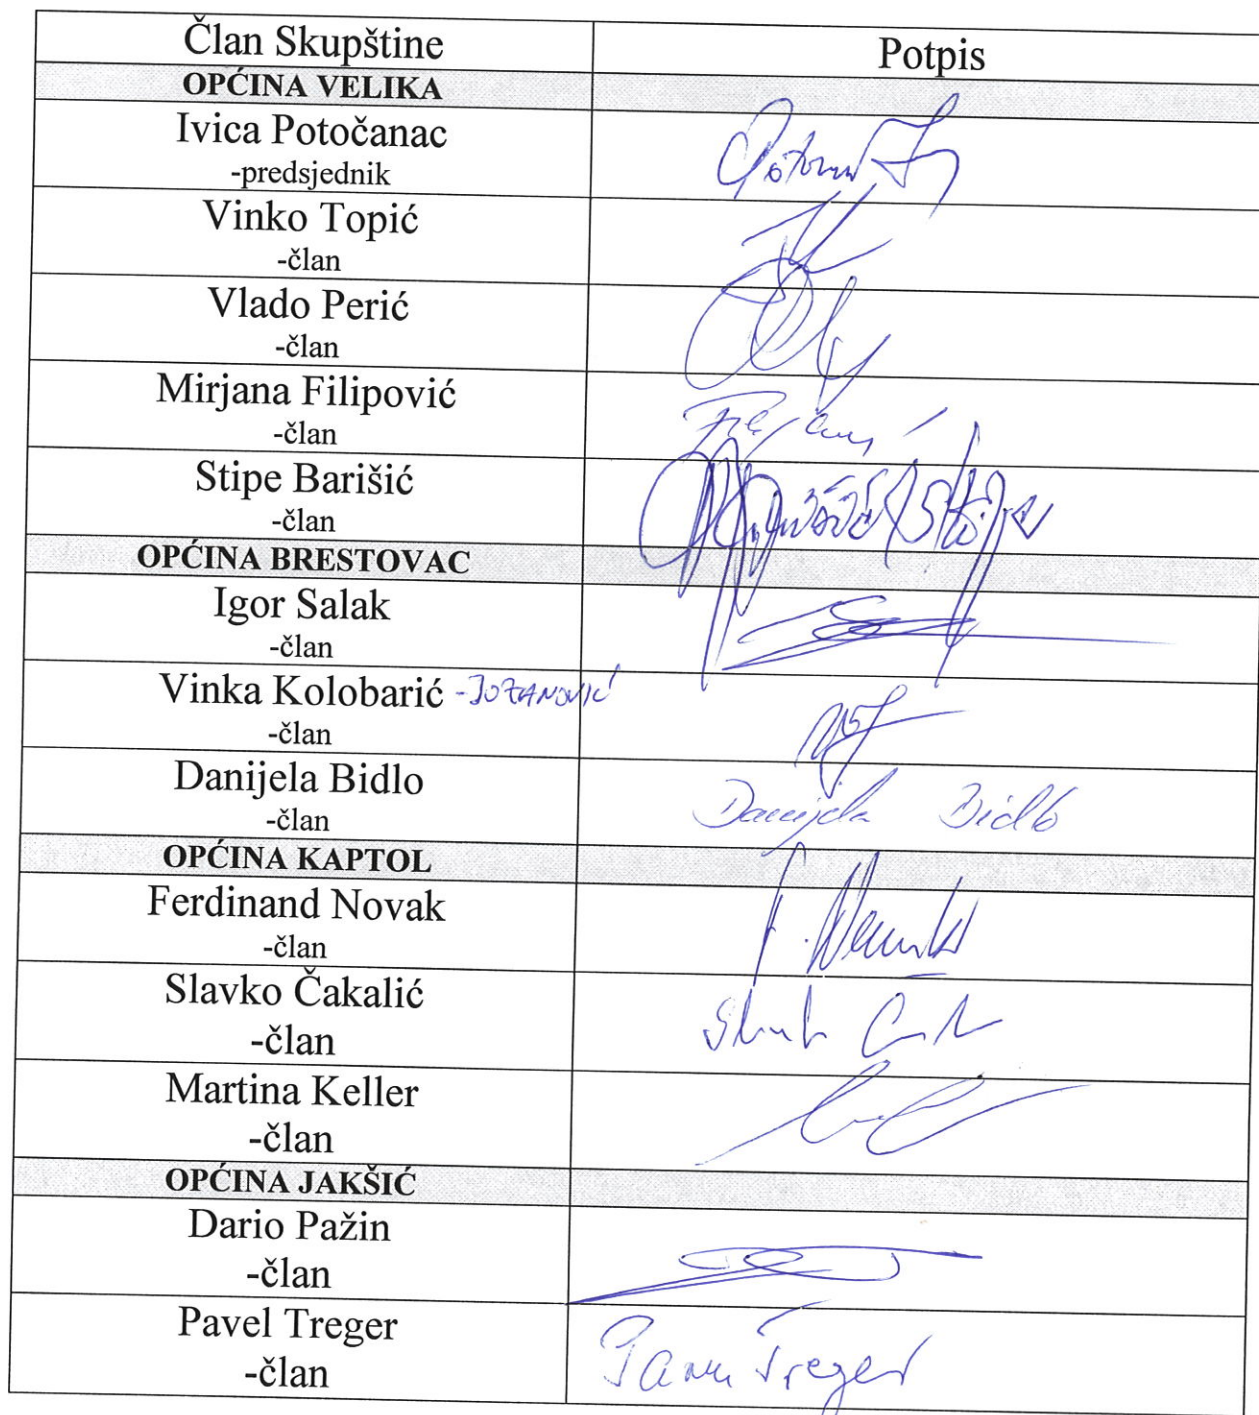 Član Skupštine Potpis
OPĆINA VELIKA
Ivica Potočanac
-predsjednik
Vinko Topić
-član
Vlado Perić
-član
Mirjana Filipović
-član
Stipe Barišić
-član
OPĆINA BRESTOVAC
Igor Salak
-član
Vinka Kolobarić -JOZANOVIĆ
-član
Danijela Bidlo
-član
Danijela Bidlo
OPĆINA KAPTOL
Ferdinand Novak
-član
Slavko Čakalić
-član
Martina Keller
-član
OPĆINA JAKŠIĆ
Dario Pažin
-član
Pavel Treger
-član
Treger